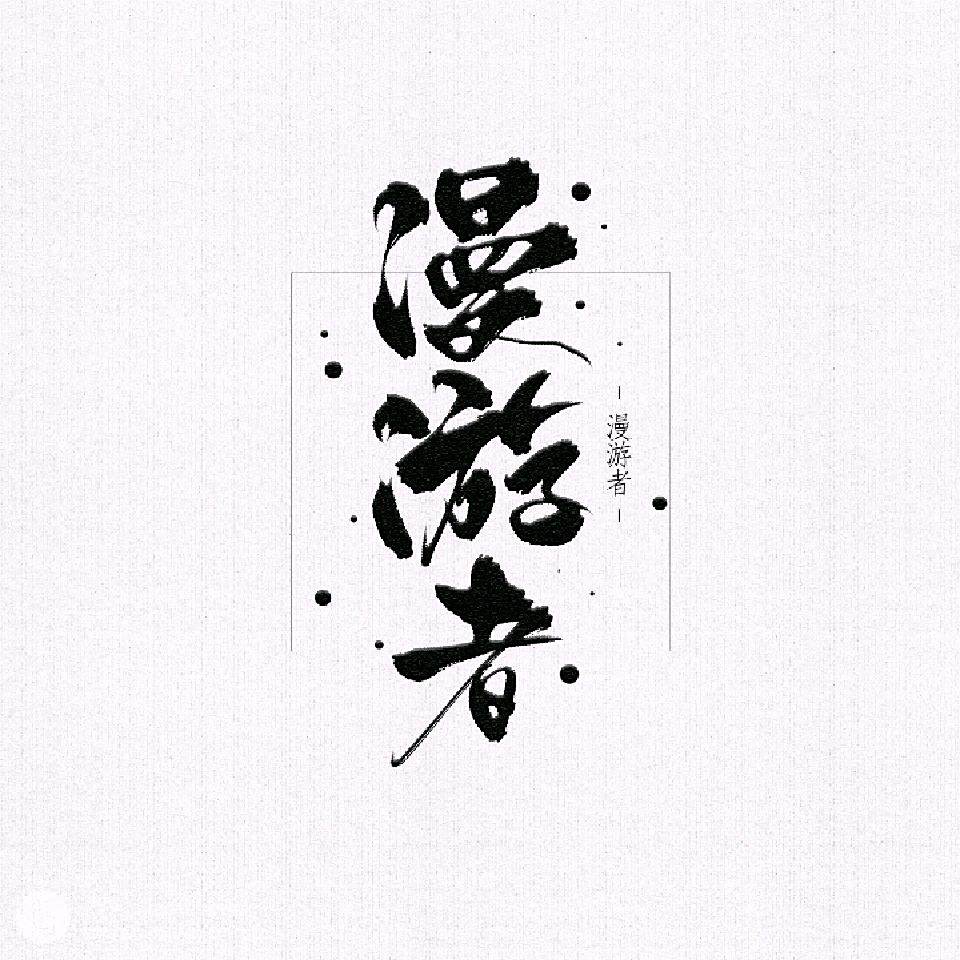 漫游者
漫游者